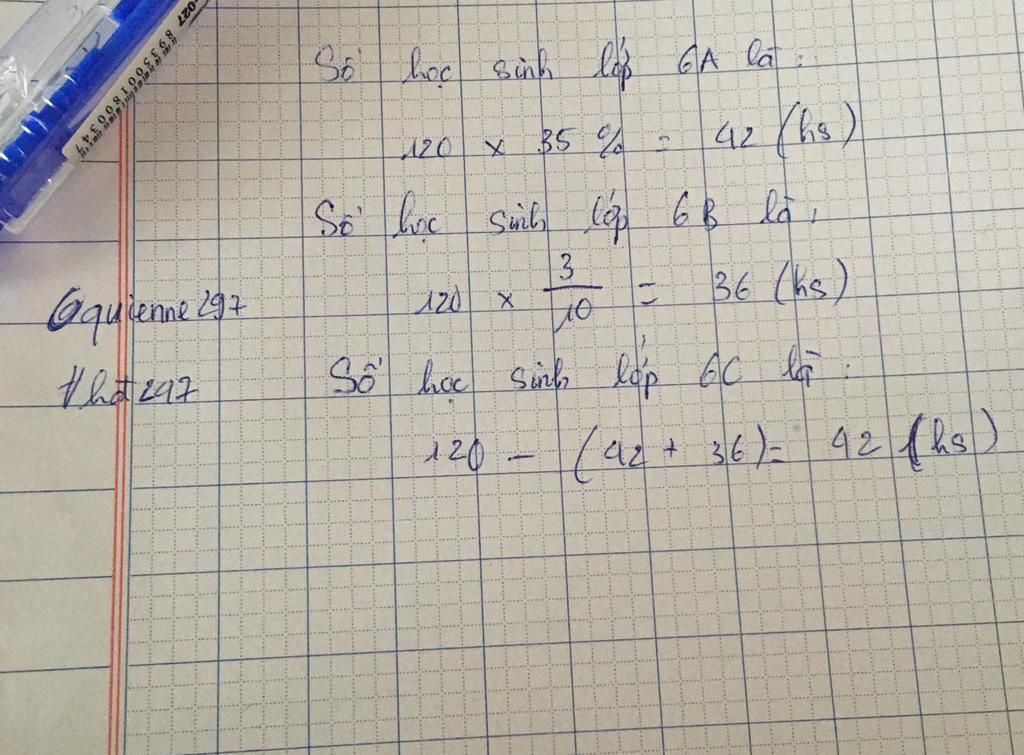 -027
8935001800347
Số học sinh lớp 6A là:
120 x 35 % = 42 (hs)
Số học sinh lớp 6B là:
120 x 3/10 = 36 (hs)
Gquienne297
#hd297
Số học sinh lớp 6C là:
120 - (42 + 36) = 42 (hs)